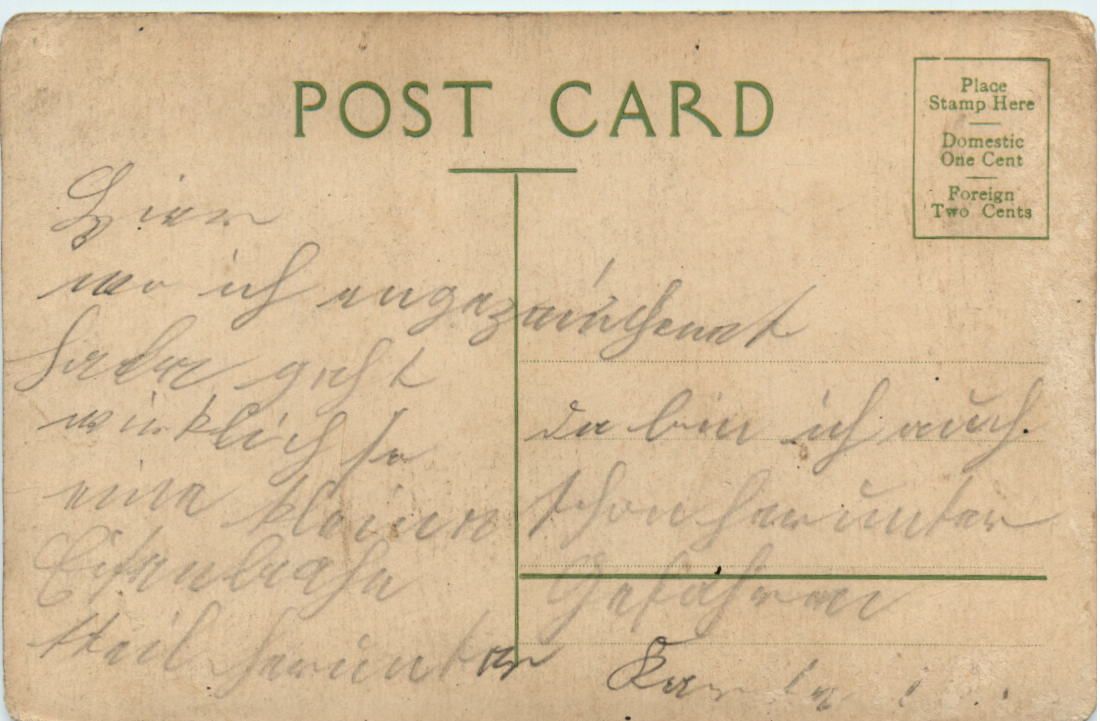 POST CARD
Place
Stamp Here
Domestic
One Cent
Foreign
Two Cents
Hier
wo ich angezeichenet
habe geht
wirklich so
eine kleine
Eisenbahn
steil herunter
da bin ich auch
schon herunter
Gefahren